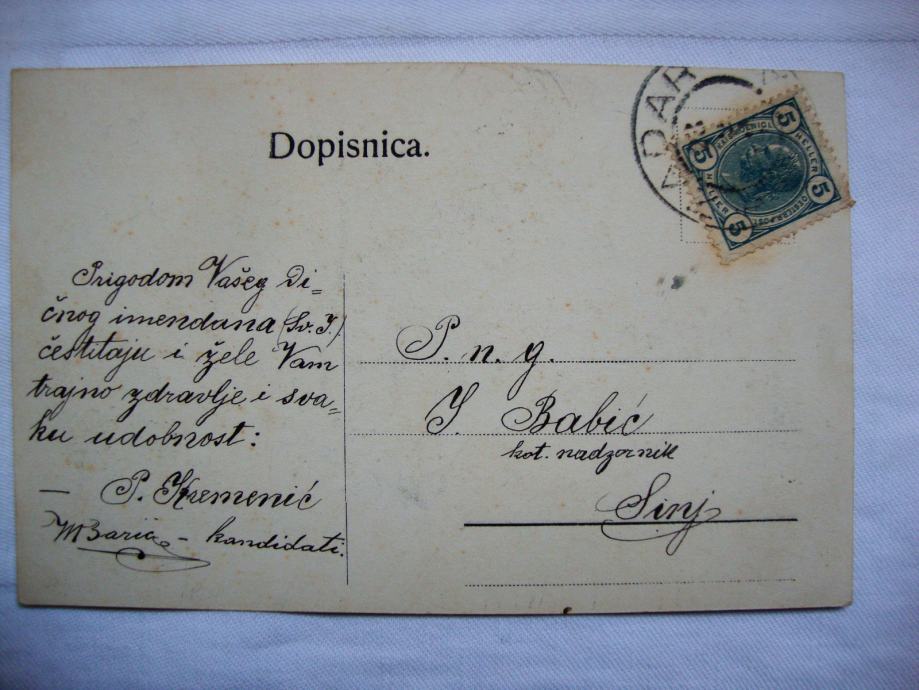 Dopisnica.
ZADAR
5 5 5 5
HELLER
HELLER
Prigodom Vašeg Di=
čnog imendana (Sv. I.)
čestitaju i žele Vam
trajno zdravlje i sva=
ku udobnost:
— P. Kremenić
MBarić – kandidati.
P. n. g.
I Babić
kot. nadzornik
Sinj